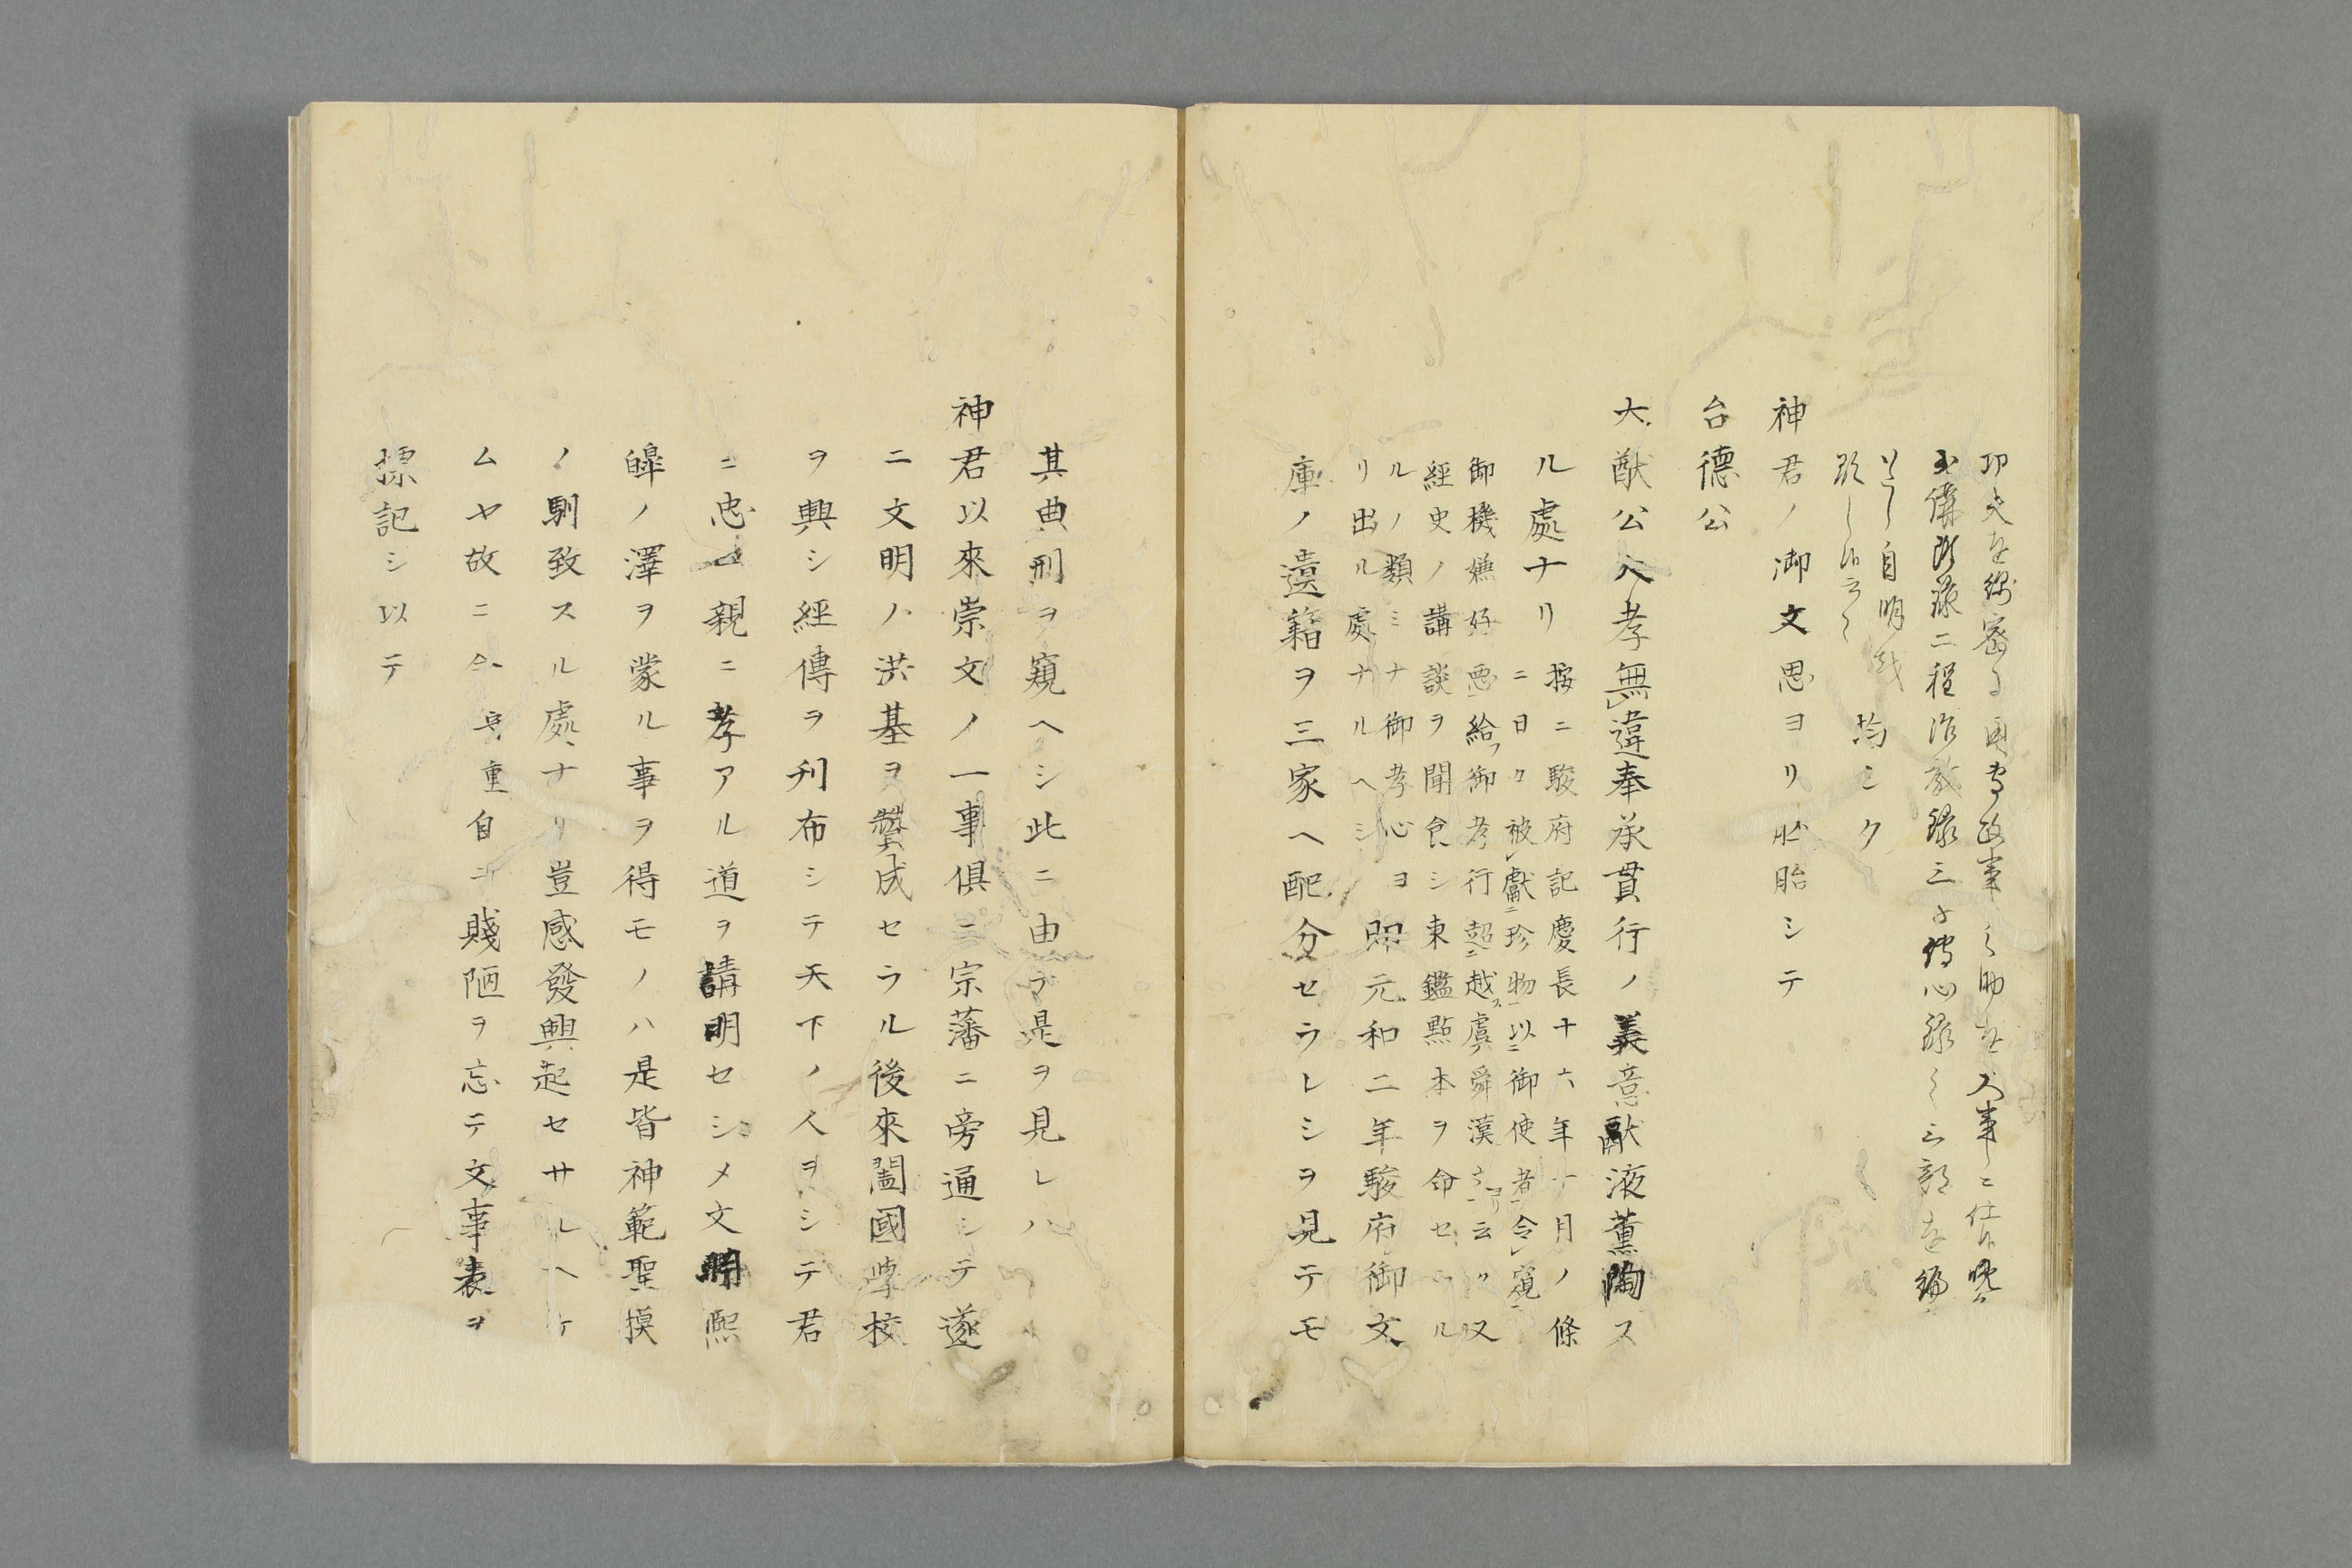 功夫を綿密る国当政事之助を人事ニ仕官
玉講所藤二程治教録三子傳心録之三部を編
自明
均シク
神君ノ御文思ヨリ胚胎シテ
台德公
大猷公へ孝無違奉承貫行ノ義意猷液薫陶ス
ル處ナリ
按ニ駿府記慶長十六年十月ノ條
ニ曰ク被獻珍物以御使者令窺
御機嫌好悪給フ御孝行超越虞舜漢文云々又
經史ノ講談ヲ聞食シ東鑑點本ヲ命セラル
ルノ類ミナ御孝心ヨ
リ出ル處ナルヘシ
即元和二年駿府御文
庫ノ遺籍ヲ三家ヘ配分セラレシヲ見テモ
其典刑ヲ窺ヘシ此ニ由テ是ヲ見レハ
神君以來崇文ノ一事俱ニ宗藩ニ旁通シテ遂
ニ文明ノ洪基ヲ贊成セラル後來闔國學校
ヲ興シ經傳ヲ刊布シテ天下ノ人ヲシテ君
ニ忠親ニ孝アル道ヲ講明セシメ文明熙
皞ノ澤ヲ蒙ル事ヲ得モノハ是皆神範聖摸
ノ馴致スル處ナリ豈感發興起セサルヘケ
ムヤ故ニ今重自ニ賤陋ヲ忘テ文事表ヲ
標記シ以テ